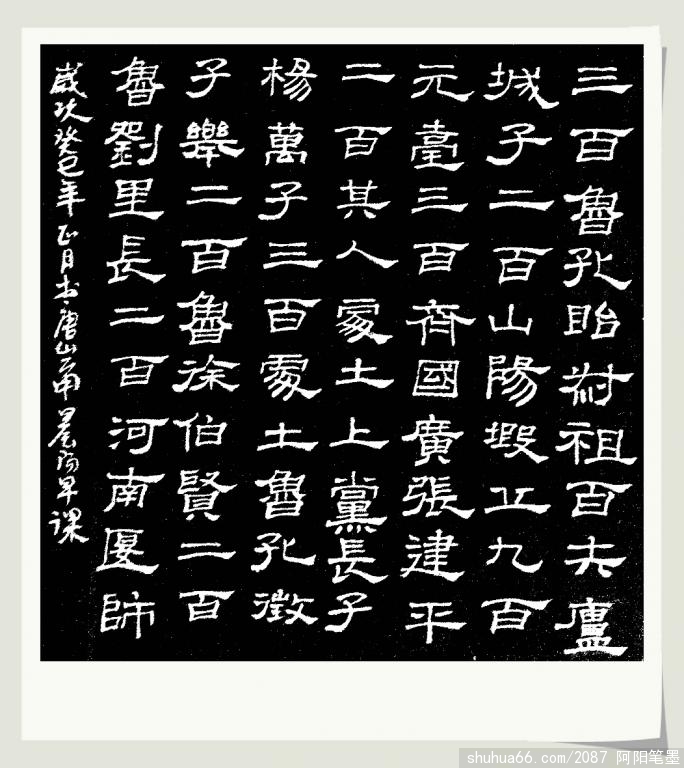 三百魯孔昭叔祖百夫廬
城子二百山陽瑕丘九百
元臺三百齊國廣張建平
二百其人處士上黨長子
楊萬子三百處士魯孔徵
子舉二百魯徐伯賢二百
魯劉里長二百河南匽師
歲次癸巳年正月書唐山南晨阳早課
shuhua66.com/2087 阿阳笔墨